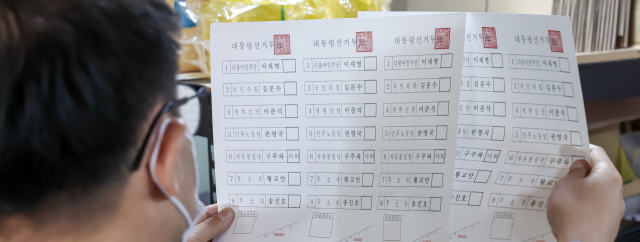 대통령선거투 대통령선거투 대통령선거투 대통령선거투
1 더불어민주당 이재명 1 더불어민주당 이재명 1 더불어민주당 이재명 1 더불어민주당 이재명
2 국민의힘 김문수 2 국민의힘 김문수 2 국민의힘 김문수 2 국민의힘 김문수
4 개혁신당 이준석 4 개혁신당 이준석 4 개혁신당 이준석 4 개혁신당 이준석
5 민주노동당 권영국 5 민주노동당 권영국 5 민주노동당 권영국 5 민주노동당 권영국
6 자유통일당 구주와 사퇴 6 자유통일당 구주와 사퇴 6 자유통일당 구주와 사퇴 구주와 사퇴 6 자유통일당 구주와
7 무소속 황교안 7 무소속 황교안 7 무소속 황교안 황교안 7 무소속 황교안
8 무소속 송진호 8 무소속 송진호 8 무소속 송진호 송진호 8 무소속 송진호